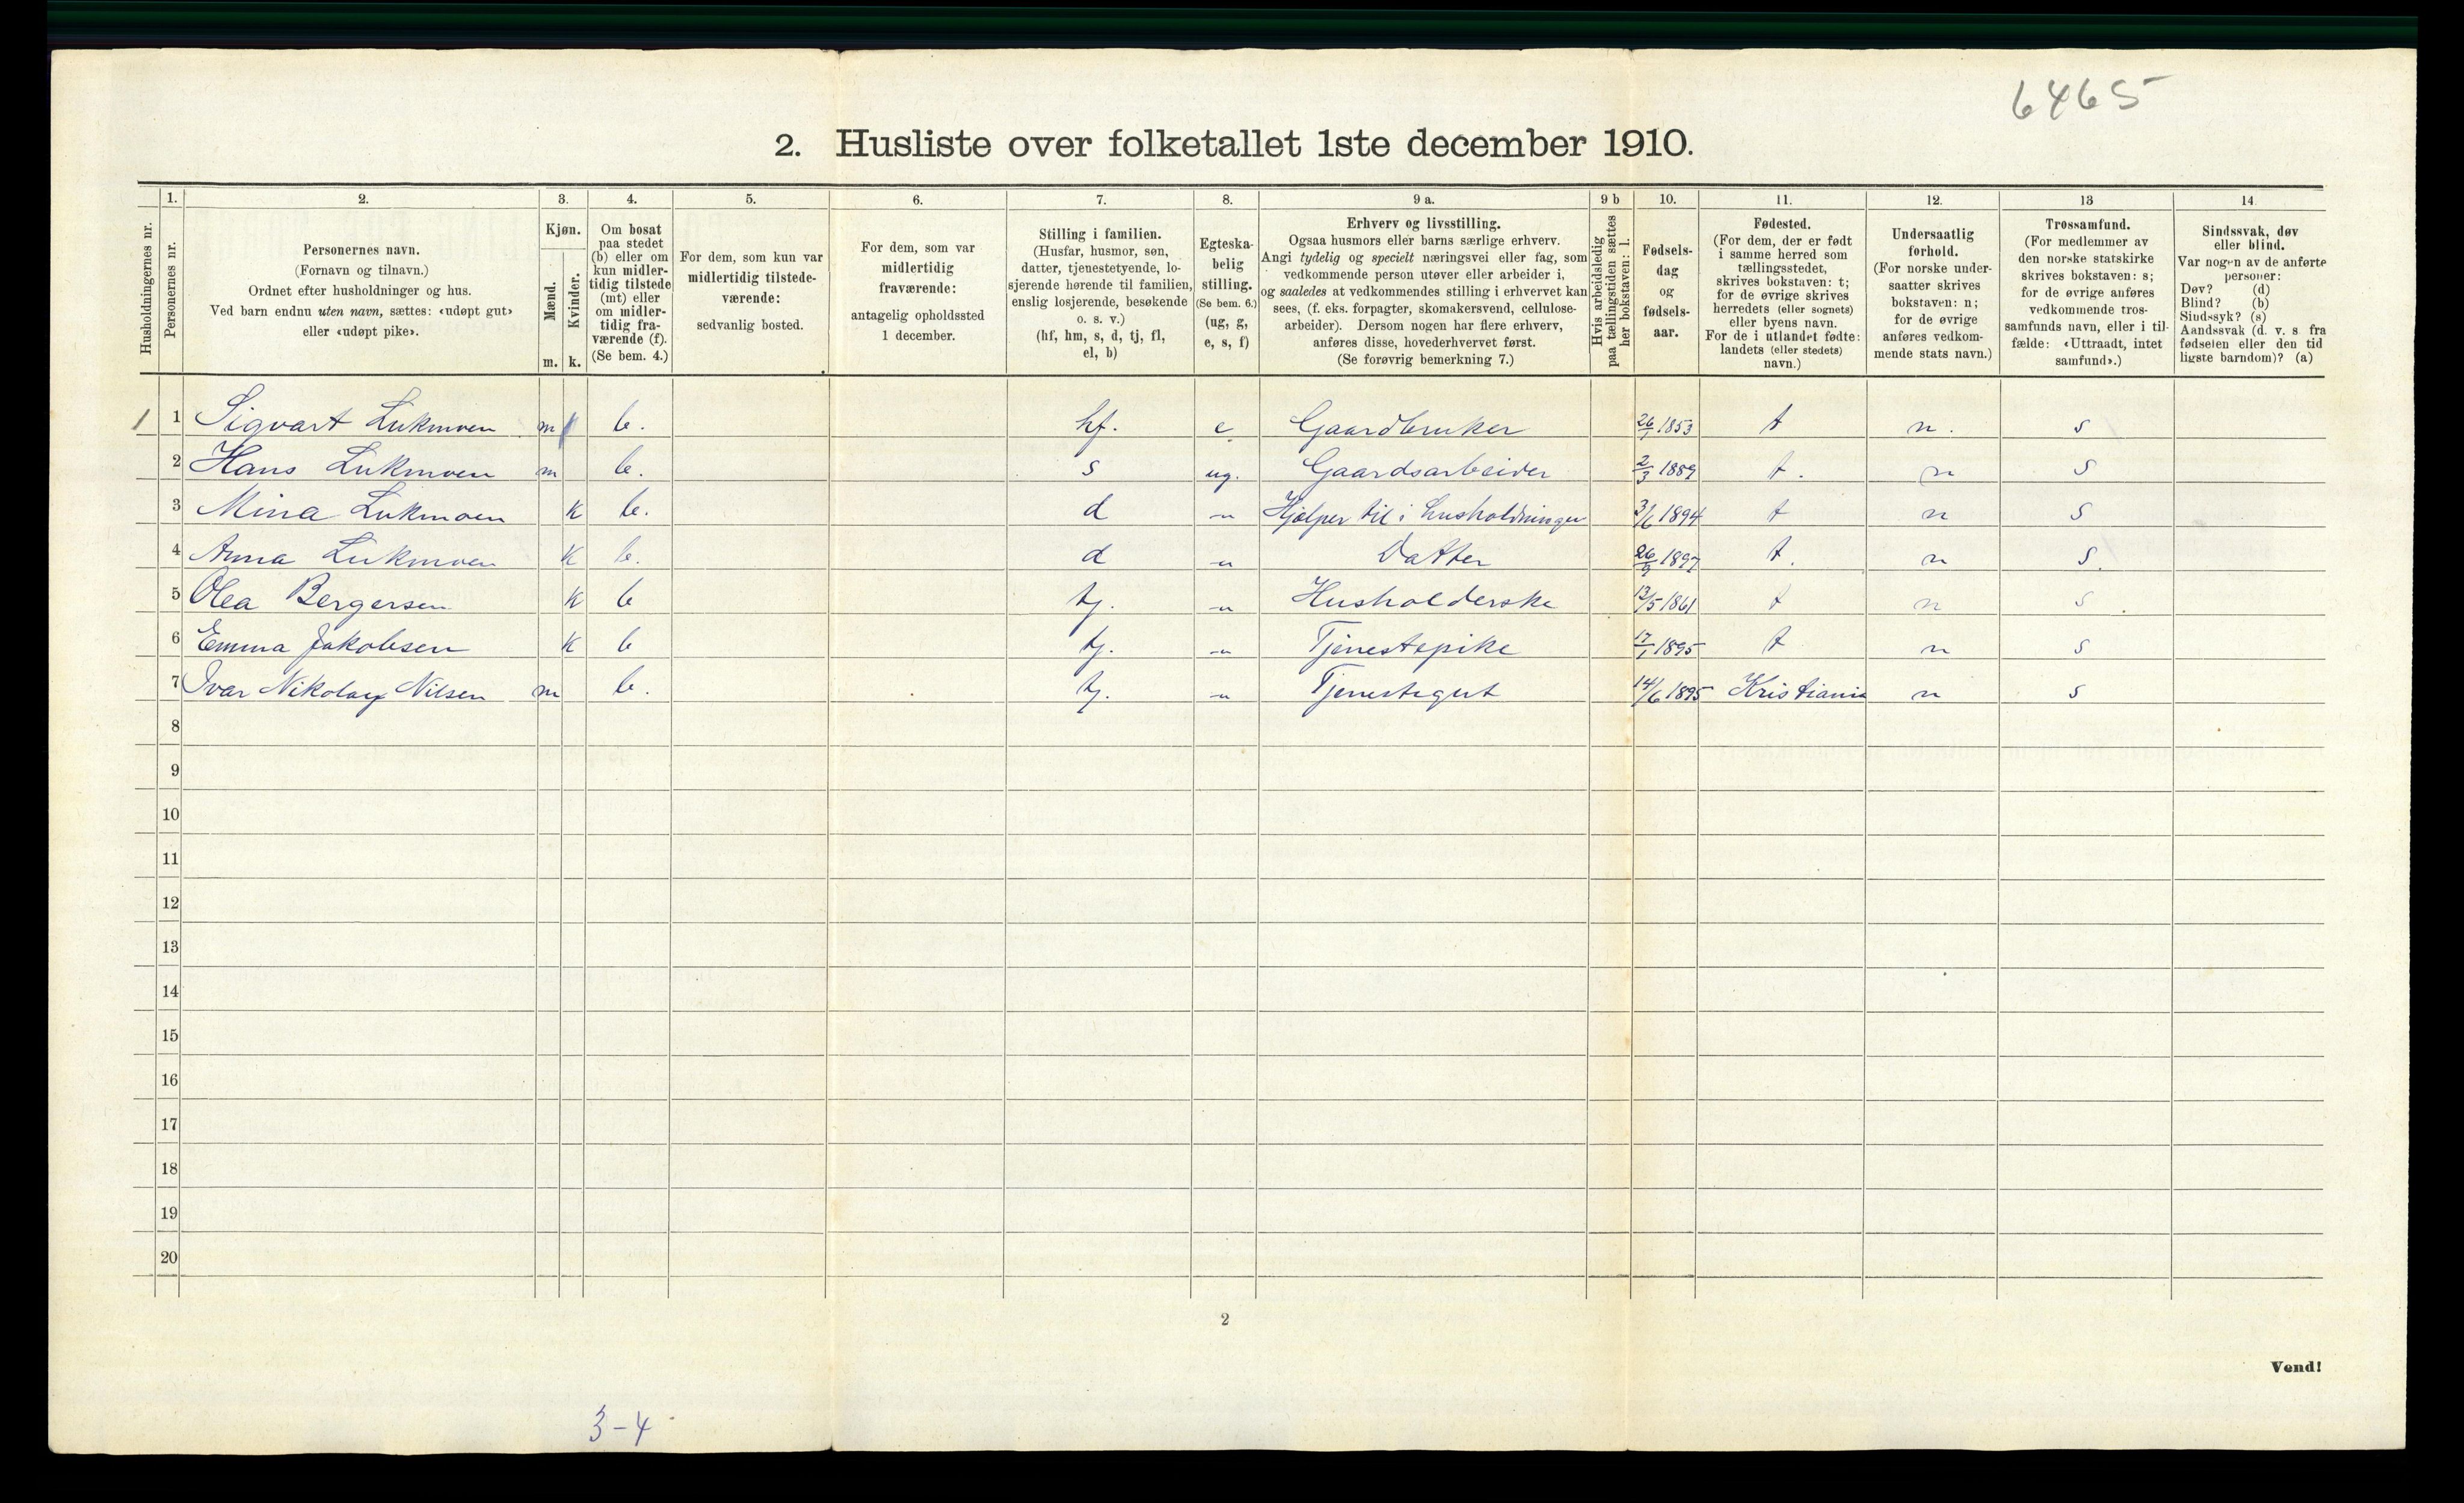 6465
2. Husliste over folketallet 1ste december 1910.
Husholdningernes nr.
1.
Personernes nr.
2.
Personernes navn.
(Fornavn og tilnavn.)
Ordnet efter husholdninger og hus.
Ved barn endnu uten navn, sættes: «udøpt gut»
eller «udøpt pike».
3.
Kjøn.
Mænd.
Kvinder.
m. k.
4.
Om bosat
paa stedet
(b) eller om
kun midler-
tidig tilstede
(mt) eller
om midler-
tidig fra-
værende (f).
(Se bem. 4.)
5.
For dem, som kun var
midlertidig tilstede-
værende:
sedvanlig bosted.
6.
For dem, som var
midlertidig
fraværende:
antagelig opholdssted
1 december.
7.
Stilling i familien.
(Husfar, husmor, søn,
datter, tjenestetyende, lo-
sjerende hørende til familien,
enslig losjerende, besøkende
o. s. v.)
(hf, hm, s, d, tj, fl,
el, b)
8.
Egteska-
belig
stilling.
(Se bem. 6.)
(ug, g,
e, s, f)
9 a.
Erhverv og livsstilling.
Ogsaa husmors eller barns særlige erhverv.
Angi tydelig og specielt næringsvei eller fag, som
vedkommende person utøver eller arbeider i,
og saaledes at vedkommendes stilling i erhvervet kan
sees, (f. eks. forpagter, skomakersvend, cellulose-
arbeider). Dersom nogen har flere erhverv,
anføres disse, hovederhvervet først.
(Se forøvrig bemerkning 7.)
9 b
Hvis arbeidsledig
paa tællingstiden sættes
her bokstaven: l.
10.
Fødsels-
dag
og
fødsels-
aar.
11.
Fødested.
(For dem, der er født
i samme herred som
tællingsstedet,
skrives bokstaven: t;
for de øvrige skrives
herredets (eller sognets)
eller byens navn.
For de i utlandet fødte:
landets (eller stedets)
navn.)
12.
Undersaatlig
forhold.
(For norske under-
saatter skrives
bokstaven: n;
for de øvrige
anføres vedkom-
mende stats navn.)
13
Trossamfund.
(For medlemmer av
den norske statskirke
skrives bokstaven: s;
for de øvrige anføres
vedkommende tros-
samfunds navn, eller i til-
fælde: «Uttraadt, intet
samfund».)
14
Sindssvak, døv
eller blind.
Var nogen av de anførte
personer:
Døv? (d)
Blind? (b)
Sindssyk? (s)
Aandssvak (d. v. s fra
fødselen eller den tid
ligste barndom)? (a)
1 1 Sigvart Lukmoen m b. hf. e Gaardbruker 26/1 1853 t n. s
2 Hans Lukmoen m b. s ug. Gaardsarbeider 2/3 1889 t. n s
3 Mina Lukmoen k b. d " Hjælper til i husholdningen 3/6 1894 t n s
4 Anna Lukmoen k b. d " Datter 26/9 1897 t. n s.
5 Olea Bergersen k b tj. " Husholderske 13/5 1861 t n s
6 Emma Jakobsen k b tj. " Tjenestepike 17/1 1895 t n s
7 Ivar Nikolay Nilsen m b. tj. " Tjenestegut 14/6 1895 Kristiania n s
8
9
10
11
12
13
14
15
16
17
18
19
20
2
Vend!
3-4